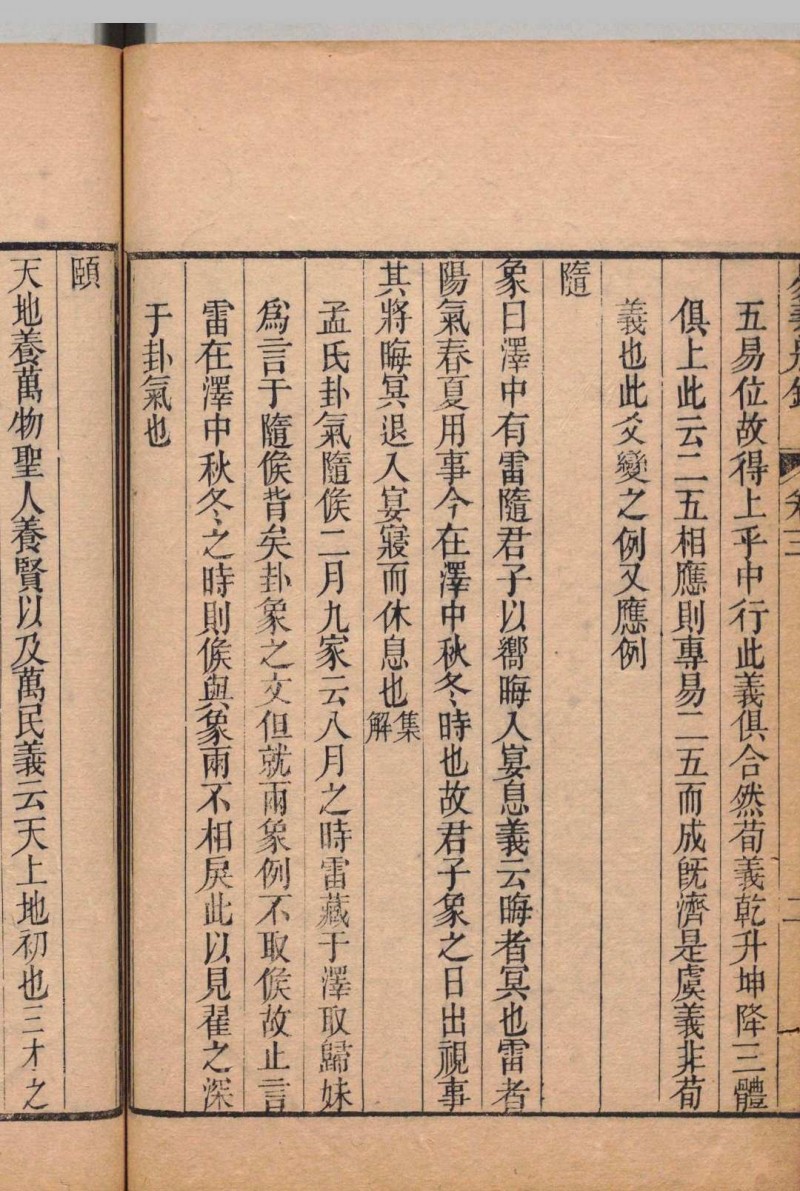 易義別錄　卷三　二
五易位故得上乎中行此義俱合然荀義乾升坤降三體
俱上此云二五相應則專易二五而成旣濟是虞義非荀
義也此爻變之例又應例
隨
象曰澤中有雷隨君子以嚮晦入宴息義云晦者冥也雷者
陽氣春夏用事今在澤中秋冬時也故君子象之日出視事
其將晦冥退入宴寢而休息也集解
孟氏卦氣隨候二月九家云八月之時雷藏于澤取歸妹
爲言于隨候背矣卦象之文但就兩象例不取候故止言
雷在澤中秋冬之時則候與象兩不相戾此以見翟之深
于卦氣也
頤
天地養萬物聖人養賢以及萬民義云天上地初也三才之